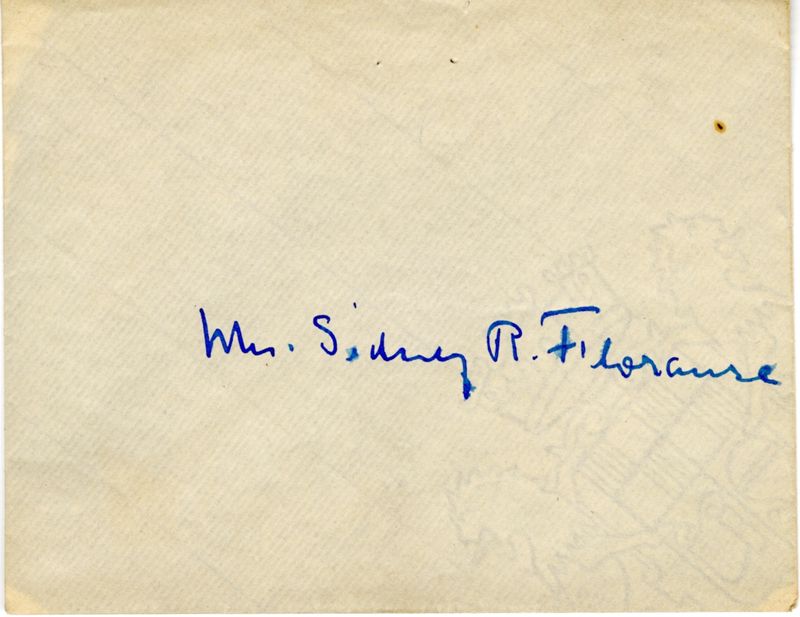 Mr. Sidney R. Florance